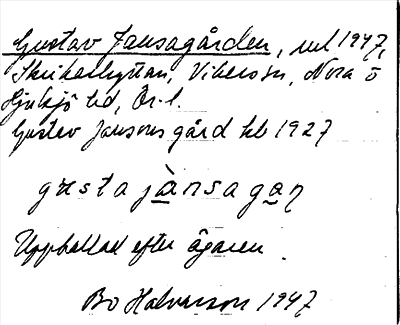 Gustav Jansagården, uul 1947,
Skrikarhyttan, Vikers sn, Nora o
Hjulsjö hd, Ör. l.
Gustav Jansons gård kb 1927
gʉsta jànsagaɳ
Uppkallad efter ägaren.
Bo Halvarson 1947